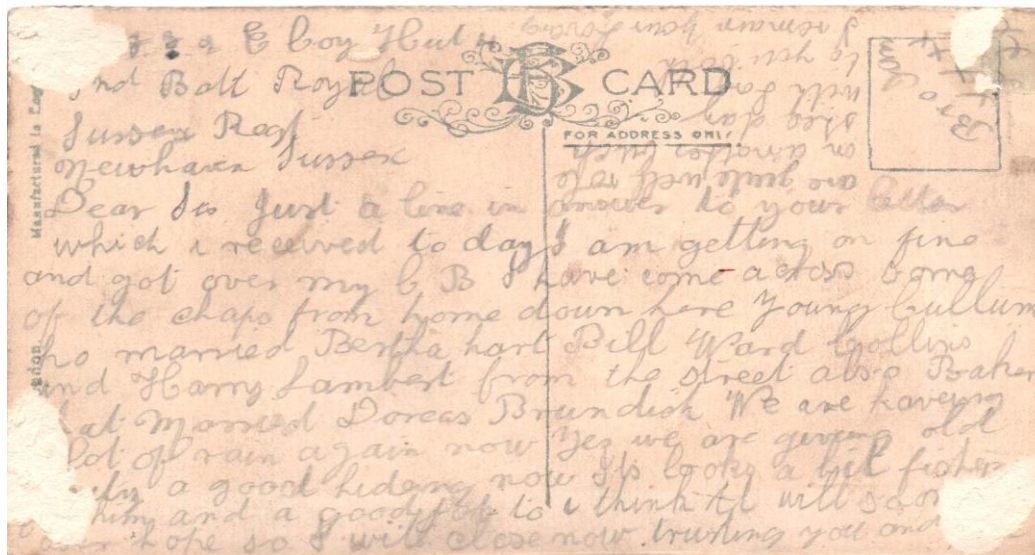 E Coy Hut 4
2nd Batt Royal
Sussex Regt
Newhaven Sussex
POST CARD
FOR ADDRESS ONLY
Manufactured in
Dear Sis Just a line in answer to your letter
which i received to day I am getting on fine
and got over my C B I have come across some
of the chaps from home down here Young Cullum
who married Bertha hart Bill Ward Collins
and Harry Lambert from the street also Baker
that Married Dorcas Brundish We are haveing
lot of rain again now Yes we are giveing old
a good hideing now Its looks a bit fishey
him and a good Job to i think it will soon
over hope so I will close now trusting you and
are quite well
on another
with
to you both
I remain your loving
Bro